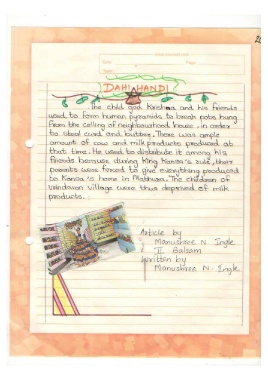 DAHI HANDI
The child god Krishna and his friends
used to form human pyramids to break pots hung
from the ceiling of neighbourhood house, in order
to steal curd and butter. There was ample
amount of cow and milk products produced at
that time. He used to distribute it among his
friends because during King Kansa's rule, their
parents were forced to give everything produced
to Kansa's home in Mathura. The children of
vrindavan village were thus deprived of milk
products.
Article by
Manushree N. Ingle
II Balsam
Written by
Manushree N. Ingle